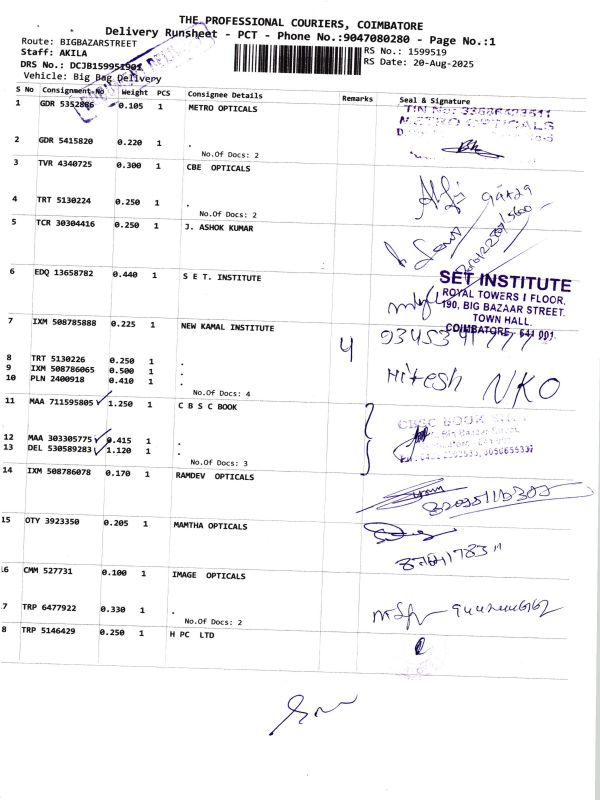 THE PROFESSIONAL COURIERS, COIMBATORE
Delivery Runsheet - PCT - Phone No.:9047080280 - Page No.:1
Route: BIGBAZARSTREET
Staff: AKILA
RS No.: 1599519
DRS No.: DCJB159951901
RS Date: 20-Aug-2025
Vehicle: Big Bag Delivery
S No Consignment No Weight PCS Consignee Details Remarks Seal & Signature
1 GDR 5352886 0.105 1 METRO OPTICALS
TIN No: 33686423511
METRO OPTICALS
2 GDR 5415820 0.220 1 .
No.Of Docs: 2
3 TVR 4340725 0.300 1 CBE OPTICALS
4 TRT 5130224 0.250 1 .
No.Of Docs: 2
5 TCR 30304416 0.250 1 J. ASHOK KUMAR
6 EDQ 13658782 0.440 1 S E T. INSTITUTE
SET INSTITUTE
ROYAL TOWERS I FLOOR,
190, BIG BAZAAR STREET.
TOWN HALL.
COIMBATORE- 641 001.
7 IXM 508785888 0.225 1 NEW KAMAL INSTITUTE
4
8 TRT 5130226 0.250 1 .
9 IXM 508786065 0.500 1 .
10 PLN 2400918 0.410 1 .
Hitesh NKO
No.Of Docs: 4
11 MAA 711595805 1.250 1 C B S C BOOK
CBSC BOOK
Big Bazaar Street,
12 MAA 303305775 0.415 1 .
13 DEL 530589283 1.120 1 .
No.Of Docs: 3
14 IXM 508786078 0.170 1 RAMDEV OPTICALS
15 OTY 3923350 0.205 1 MAMTHA OPTICALS
16 CMM 527731 0.100 1 IMAGE OPTICALS
.7 TRP 6477922 0.330 1 .
No.Of Docs: 2
8 TRP 5146429 0.250 1 H PC LTD